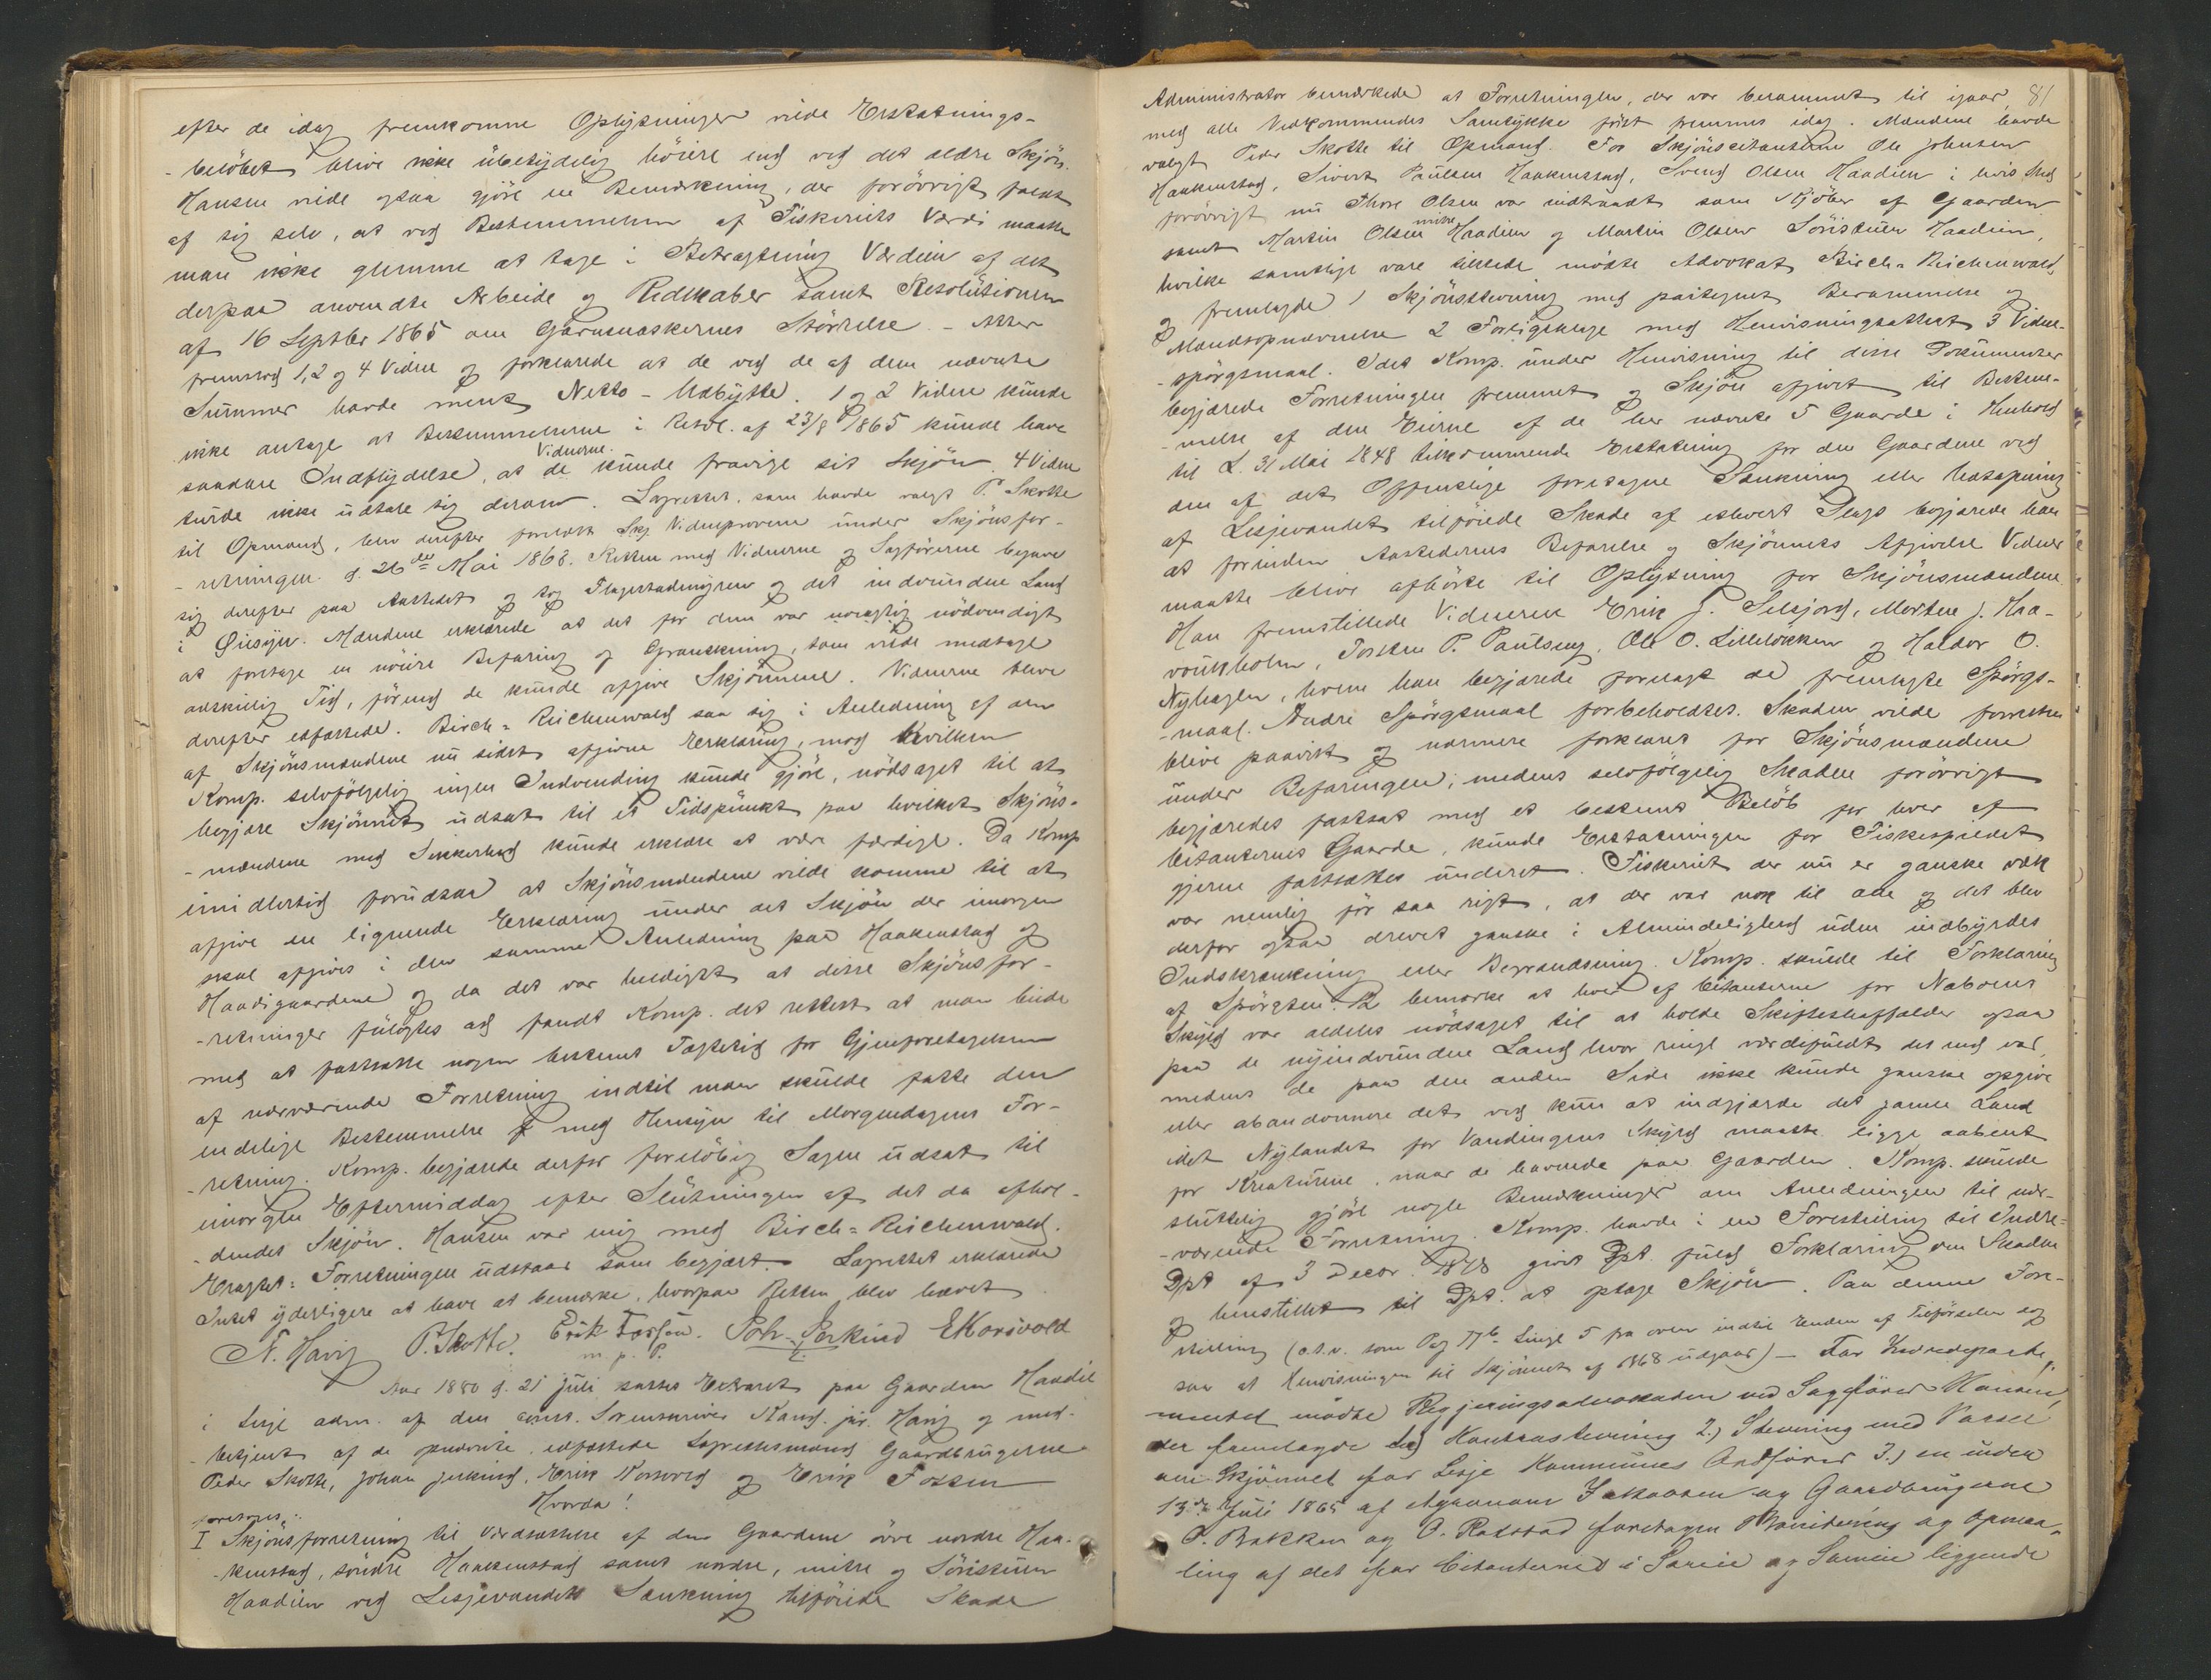 efter de idag fremkomne Oplysninger vilde Erstatnings-
-beløbet blive ikke ubetydelig høiere end ved det ældre Skjøn.
Hansen vilde ogsaa gjøre en Bemærkning, der forøvrigt faldt
af sig selv, at ved Bestemmelsen af Fiskeriets Værdi maatte
man ikke glemme at tage i Betragtning Værdien af det
derpaa anvendte Arbeide og Redskaber samt Resolutionen
af 16 Septbr 1865 om Garnmaskernes Størrelse. - Atter
fremstod 1, 2 og 4 Vidne og forklarede at de ved de af dem nævnte
Summer havde ment Netto-Udbytte. 1 og 2 Vidne kunde
ikke antage at Bestemmelserne i Resol. af 23/8 1865 kunde have
saadan Indflydelse, at de Vidnerne kunde fravige sit Skjøn. 4 Vidne
turde ikke udtale sig derom. Lagretten, som havde valgt P. Skotte
til Opmand, blev derefter forelæst Skj. Vidneprovene under Skjønsfor-
-retningen d. 26de Mai 1868. Retten med Vidnerne og Sagførerne begave
sig derefter paa Aastedet og tog Flagestadmyren og det indvundne Land
i Øiesyn. Mændene erklærede at det for dem var nødvendigt
at foretage en nøiere Befaring og Granskning, som vilde medtage
adskillig Tid, førend de kunde afgive Skjønnene. Vidnerne bleve
derefter edfæstede. Birch-Reichenwald saa sig i Anledning af den
af Skjønsmændene nu sidst afgivne Erklæring, mod hvilken
Komp. selvfølgelig ingen Indvending kunde gjøre, nødsaget til at
begjære Skjønnet udsat til et Tidspunkt paa hvilket Skjøns-
-mændene med Sikkerhed kunde erklære at være færdige. Da Komp
imidlertid forudsaa at Skjønsmændene vilde komme til at
afgive en lignende Erklæring under det Skjøn der imorgen
skal afgives i den samme Anledning paa Haakenstad og
Haadigaardene og da det var heldigst at disse Skjønsfor-
-retninger fulgtes ad fandt Komp. det rettest at man biede
med at fastsætte nogen bestemt Tægtetid for Gjenforetagelsen
af nærværende Forretning indtil man skulde fatte den
endelige Bestemmelse med Hensyn til Morgendagens For-
-retning. Komp. begjærede derfor foreløbig Sagen udsat til
imorgen Eftermiddag efter Slutningen af det da afhol-
-dendes Skjøn. Hansen var enig med Birch-Reichenwald.
Eragtet: Forretningen udstaar som begjært. Lagrettet erklærede
Intet yderligere at have at bemærke, hvorpaa Retten blev hævet
N. Harig P. Skotte. Erik Fossen. Joh. Jerkind E Korsvold
m. p. P.
Aar 1880 d. 21 juli sattes Extraret paa Gaarden Haadil
i Lesje adm. af den const. Sorenskriver Kand. jur. Harig og med-
-betjent af de opnævnte edfæstede Lagrettesmænd Gaardbrugerne
Peder Skotte, Johan Jerkind, Erik Korsvold og Erik Fossen
Hvorda!
foretoges:
I Skjønsforretning til Værdsættelse af den Gaardene øvre nordre Haa-
-kenstad, søndre Haakenstad samt nordre, mitre og Søristuen
Haadien ved Lesjevandets Sænkning tilføiede Skade
81
Administrator bemærkede at Forretningen, der var berammet til igaar,
med alle Vedkommendes Samtykke først fremmes idag. Mændene havde
valgt Peder Skotte til Opmand. For Skjønscitanterne Ole Johnsen
Haakenstad, Sivert Paulsen Haakenstad, Svend Olsen Haadien i hvis Sted
forøvrigt nu Thore Olsen var indtraadt som Kjøber af Gaarden
samt Martin Olsen mitre Haadien og Martin Olsen Søristuen Haadien,
hvilke samtlige vare tilstede mødte Advokat Birch-Reichenwald,
og fremlagde 1 Skjønsstevning med paategnet Berammelse og
Mandsopnævnelse 2 Forligsklage med Henvisningsattest 3 Vidne-
-spørgsmaal. Idet Komp. under Henvisning til disse Dokumenter
begjærede Forretningen fremmet og Skjøn afgivet til Bestem-
-melse af den Eierne af de her nævnte 5 Gaarde i Henhold
til L. 31 Mai 1848 tilkommende Erstatning for den Gaardene ved
den af det Offentlige foretagne Sænkning eller Udtapning
af Lesjevandet tilføiede Skade af ethvert Slags begjærede han
at forinden Aastedernes Befarelse og Skjønnets Afgivelse Vidner
maatte blive afhørte til Oplysning for Skjønsmændene.
Han fremstillede Vidnerne Erik J. Selsjord, Morten J. Haa-
vonkholm, Torsten P. Paulseng, Ole O. Lilleløkken og Haldor O.
Nyhagen, hvem han begjærede forelagt de fremlagte Spørgs-
-maal. Andre Spørgsmaal forbeholdtes. Skaden vilde forresten
blive paavist og nærmere forklaret for Skjønsmændene
under Befaringen; medens selvfølgelig Skaden forøvrigt
begjæredes fastsat med et bestemt Beløb for hver af
Citanternes Gaarde, kunde Erstatningen for Fiskespildet
gjerne fastsættes underet. Fiskeriet der nu er ganske væk
var nemlig før saa rigt, at der var nok til alle og det blev
derfor ogsaa drevet ganske i Almindelighed uden indbyrdes
Indskrænkning eller Begrændsning. Komp. skulde til Forklaring
af Spørgsm. 12 bemærke at hver af Citanterne for Naboens
Skyld var aldeles nødsaget til at holde Skifteshaffælder ogsaa
paa de nyindvundne Land hvor ringe værdifuldt det end var,
medens de paa den anden Side ikke kunde ganske opgive
eller abandonnere det ved kun at indgjærde det gamle Land
idet Nylandet for Vandingens Skyld maatte ligge aabent
for Kreaturene, naar de havnede paa Gaarden. Komp. skulde
sluttelig gjøre nogle Bemærkninger om Anledningen til nær-
-værende Forretning. Komp. havde i en Forestilling til Indre-
Dpt af 3 Decbr. 1878 givet Dpt. fuld Forklaring om Skaden
og henstillet til Dpt. at optage Skjøn. Paa denne Fore-
stilling (o.s.v. som Pag 77b Linje 5 fra oven indtil Enden af Tilførselen dog
saa at Henvisningen til Skjønnet af 1868 udgaar) - For Indredeparte-
mentet mødte Regjeringsadvokaten ved Sagfører Hansen,
der fremlagde 1.) Kontrastevning 2.) Stevning med Varsel
om Skjønnet for Lesje Kommunes Ordfører 3.) en under
13de Juli 1865 af Agronom Jakobsen og Gaardbrugerne
P. Bakken og O. Rolstad foretagen Bonitering og Opmaa-
ling af det for Citanterne i Særeie og Sameie liggende